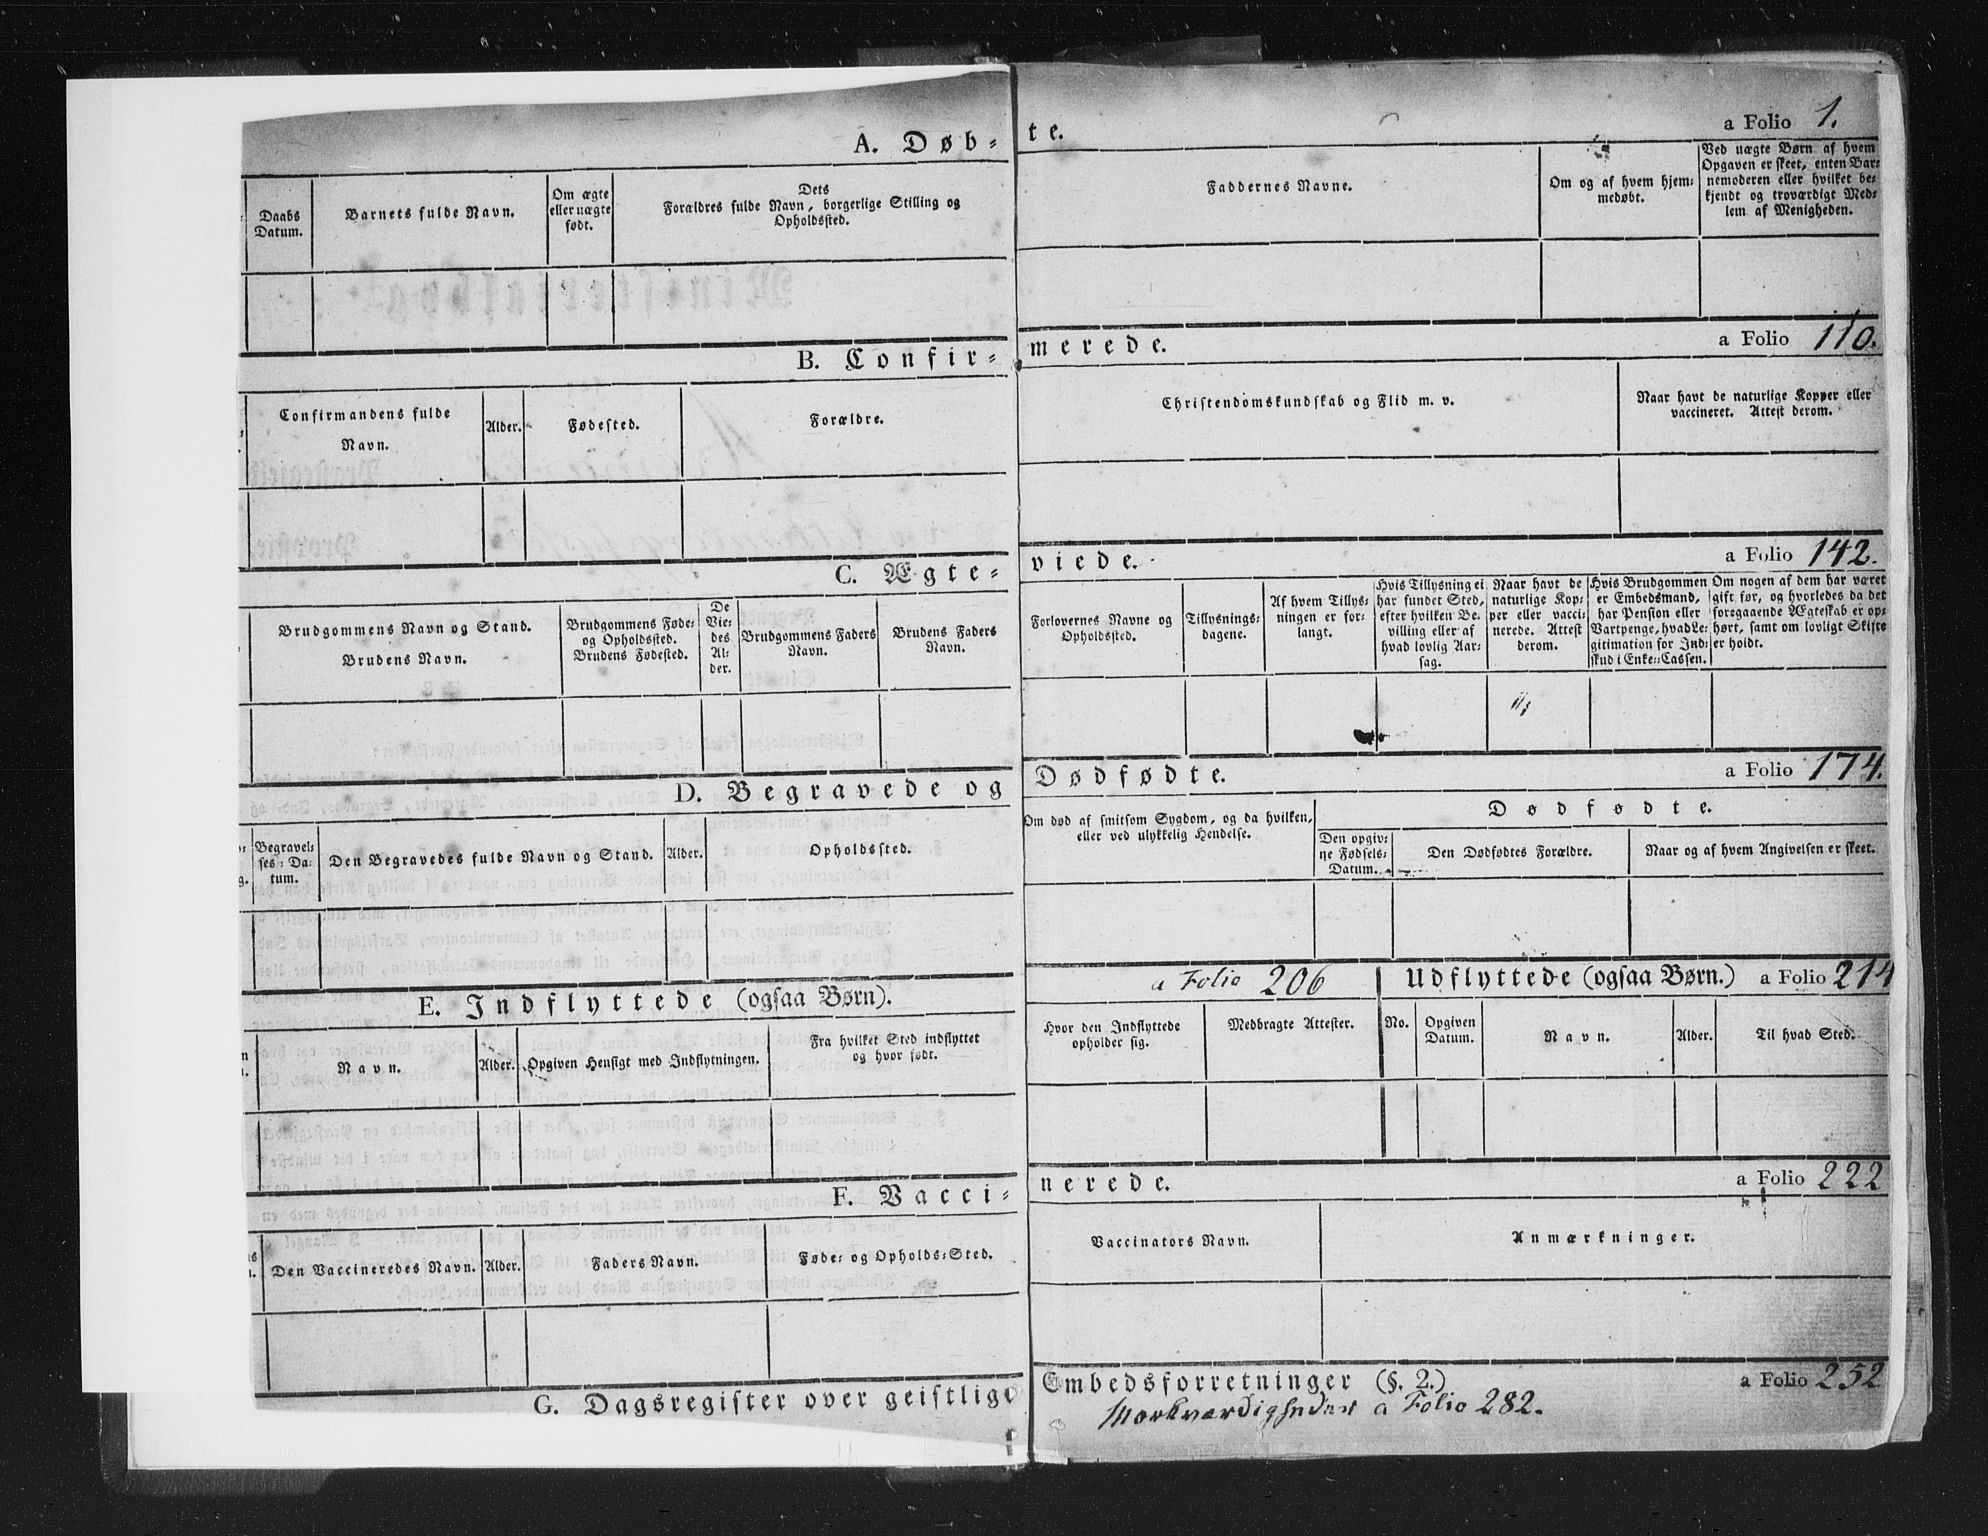 A. Døb-
te.
a Folio 1.
Daabs
Datum.
Barnets fulde Navn.
Om ægte
eller uægte
født.
Dets
Forældres fulde Navn, borgerlige Stilling og
Opholdssted.
Faddernes Navne.
Om og af hvem hjem-
medøbt.
Ved uægte Børn af hvem
Opgaven er skeet, enten Bar-
nemoderen eller hvilket be-
kjendt og troværdigt Med-
lem af Menigheden.
B. Confir-
merede.
a Folio 110.
Confirmandens fulde
Navn.
Alder.
Fødested.
Forældre.
Christendomskundskab og Flid m. v.
Naar havt de naturlige Kopper eller
vaccineret. Attest derom.
C. Ægte-
viede.
a Folio 142.
Brudgommens Navn og Stand.
Brudens Navn.
Brudgommens Føde-
og Opholdssted.
Brudens Fødested.
De
Vie-
des
Al-
der.
Brudgommens Faders
Navn.
Brudens Faders
Navn.
Forlovernes Navne og
Opholdssted.
Tillysnings-
dagene.
Af hvem Tillys-
ningen er for-
langt.
Hvis Tillysning ei
har fundet Sted,
efter hvilken Be-
villing eller af
hvad lovlig Aar-
sag.
Naar havt de
naturlige Kop-
per eller vacci-
nerede. Attest
derom.
Hvis Brudgommen
er Embedsmand,
har Pension eller
Vartpenge, hvad Le-
gitimation for Ind-
skud i Enke-Cassen.
Om nogen af dem har været
gift før, og hvorledes da det
foregaaende Ægteskab er op-
hørt, samt om lovligt Skifte
er holdt.
D. Begravede og
Dødfødte.
a Folio 174.
Begravel-
ses-Da-
tum.
Den Begravedes fulde Navn og Stand.
Alder.
Opholdssted.
Om død af smitsom Sygdom, og da hvilken,
eller ved ulykkelig Hendelse.
Dødfødte.
Den opgiv-
ne Fødsels-
Datum.
Den Dødfødtes Forældre.
Naar og af hvem Angivelsen er skeet.
E. Indflyttede (ogsaa Børn).
a Folio 206
Udflyttede (ogsaa Børn.) a Folio 214
Navn.
Alder.
Opgiven Hensigt med Indflytningen.
Fra hvilket Sted indflyttet
og hvor født.
Hvor den Indflyttede
opholder sig.
Medbragte Attester.
No.
Opgiven
Datum.
Navn.
Alder.
Til hvad Sted.
F. Vacci-
nerede.
a Folio 222
Den Vaccineredes Navn.
Alder.
Faders Navn.
Føde- og Opholds-Sted.
Vaccinators Navn.
Anmærkninger.
G. Dagsregister over geistlige
Embedsforretninger (§. 2.)
a Folio 252
Mærkværdigheder a Folio 282.